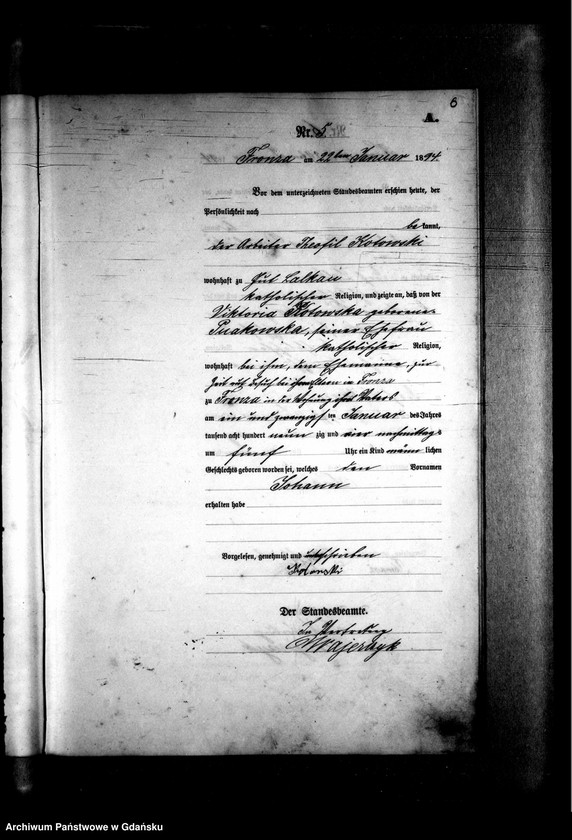 6
A.
Nr. 5.
Fronza am 22ten Januar 1894.
Vor dem unterzeichneten Standesbeamten erschien heute, der
Persönlichkeit nach
bekannt,
der Arbeiter Theofil Kotowski
wohnhaft zu Gut Lalkau
katholischer Religion, und zeigte an, daß von der
Viktoria Kotowska geborene
seiner Ehefrau
katholischer Religion,
wohnhaft bei ihm, dem Ehemanne, zur
Zeit auf Besuch bei ihren Eltern in Fronza
zu Fronza in der Wohnung ihres Vaters
am ein und zwanzigsten Januar des Jahres
tausend acht hundert neunzig und vier nachmittags
um fünf Uhr ein Kind männlichen
Geschlechts geboren worden sei, welches den Vornamen
Johann
erhalten habe
Vorgelesen, genehmigt und unterschrieben
Der Standesbeamte.
In Vertretung
Majewski
Archiwum Państwowe w Gdańsku